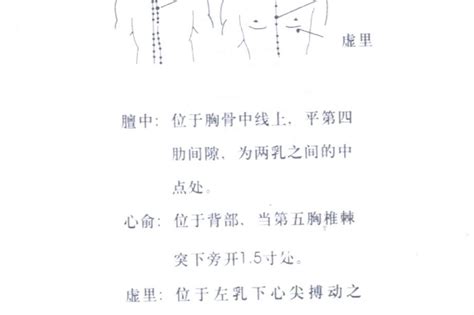 虚里
膻中：位于胸骨中线上，平第四
肋间隙，为两乳之间的中
点处。
心俞：位于背部，当第五胸椎棘
突下旁开1.5寸处。
虚里：位于左乳下心尖搏动之